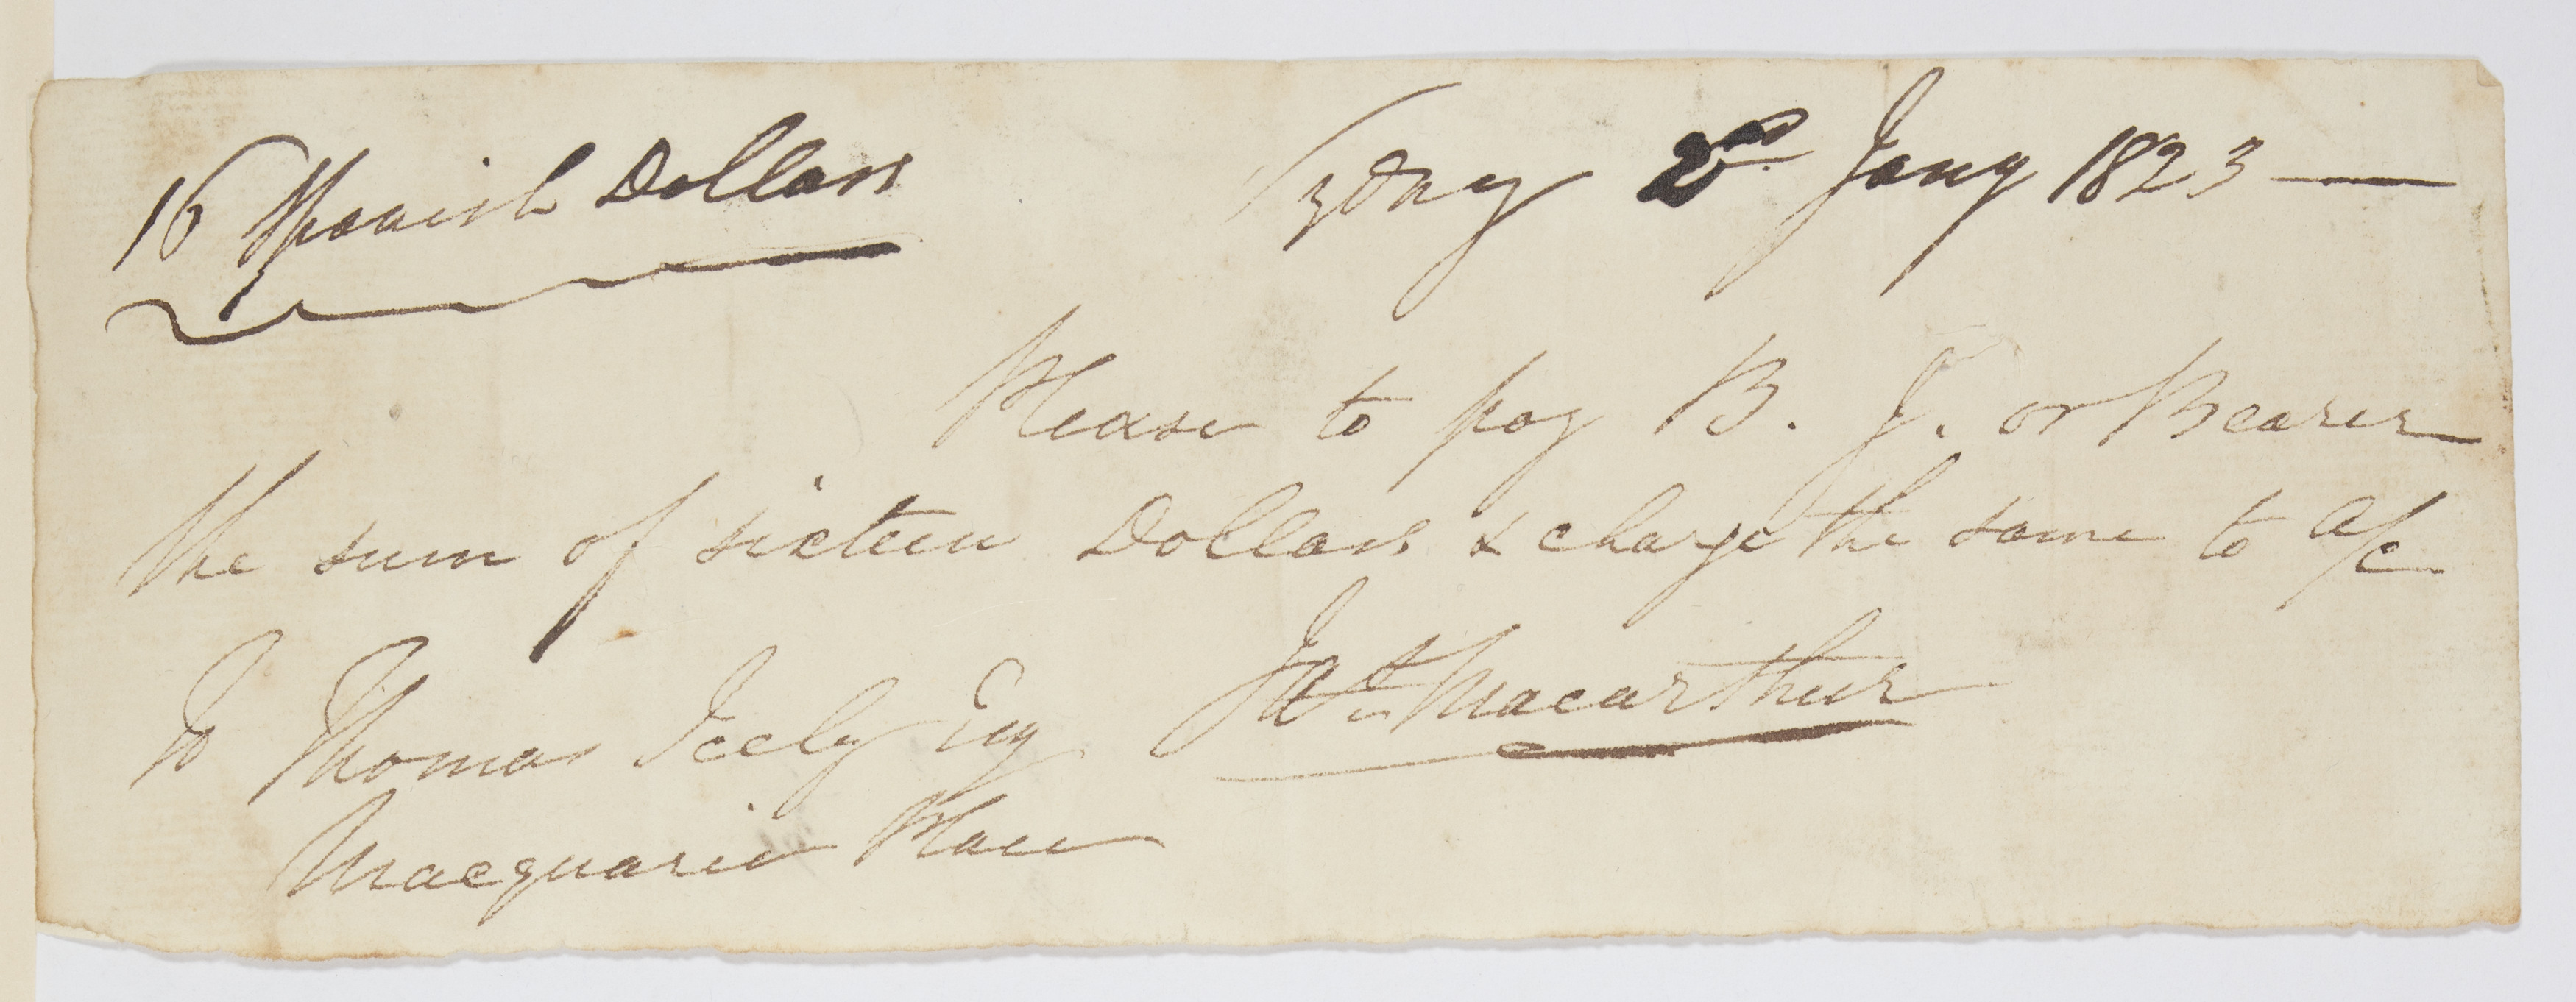 16 Spanish Dollars
Sydney 2nd Jany 1823 —
Please to pay B. J. or Bearer
the sum of sixteen Dollars & charge the same to a/c
Macarthur
To Thomas Icely Esq
Macquarie Place